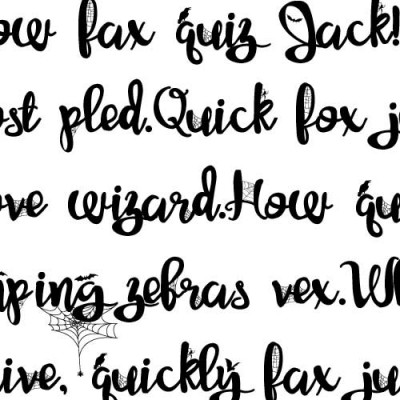 ow fax quiz Jack!
ost pled.Quick fox ju
ove wizard.How qu
mping zebras vex.Wh
ive, quickly fax ju